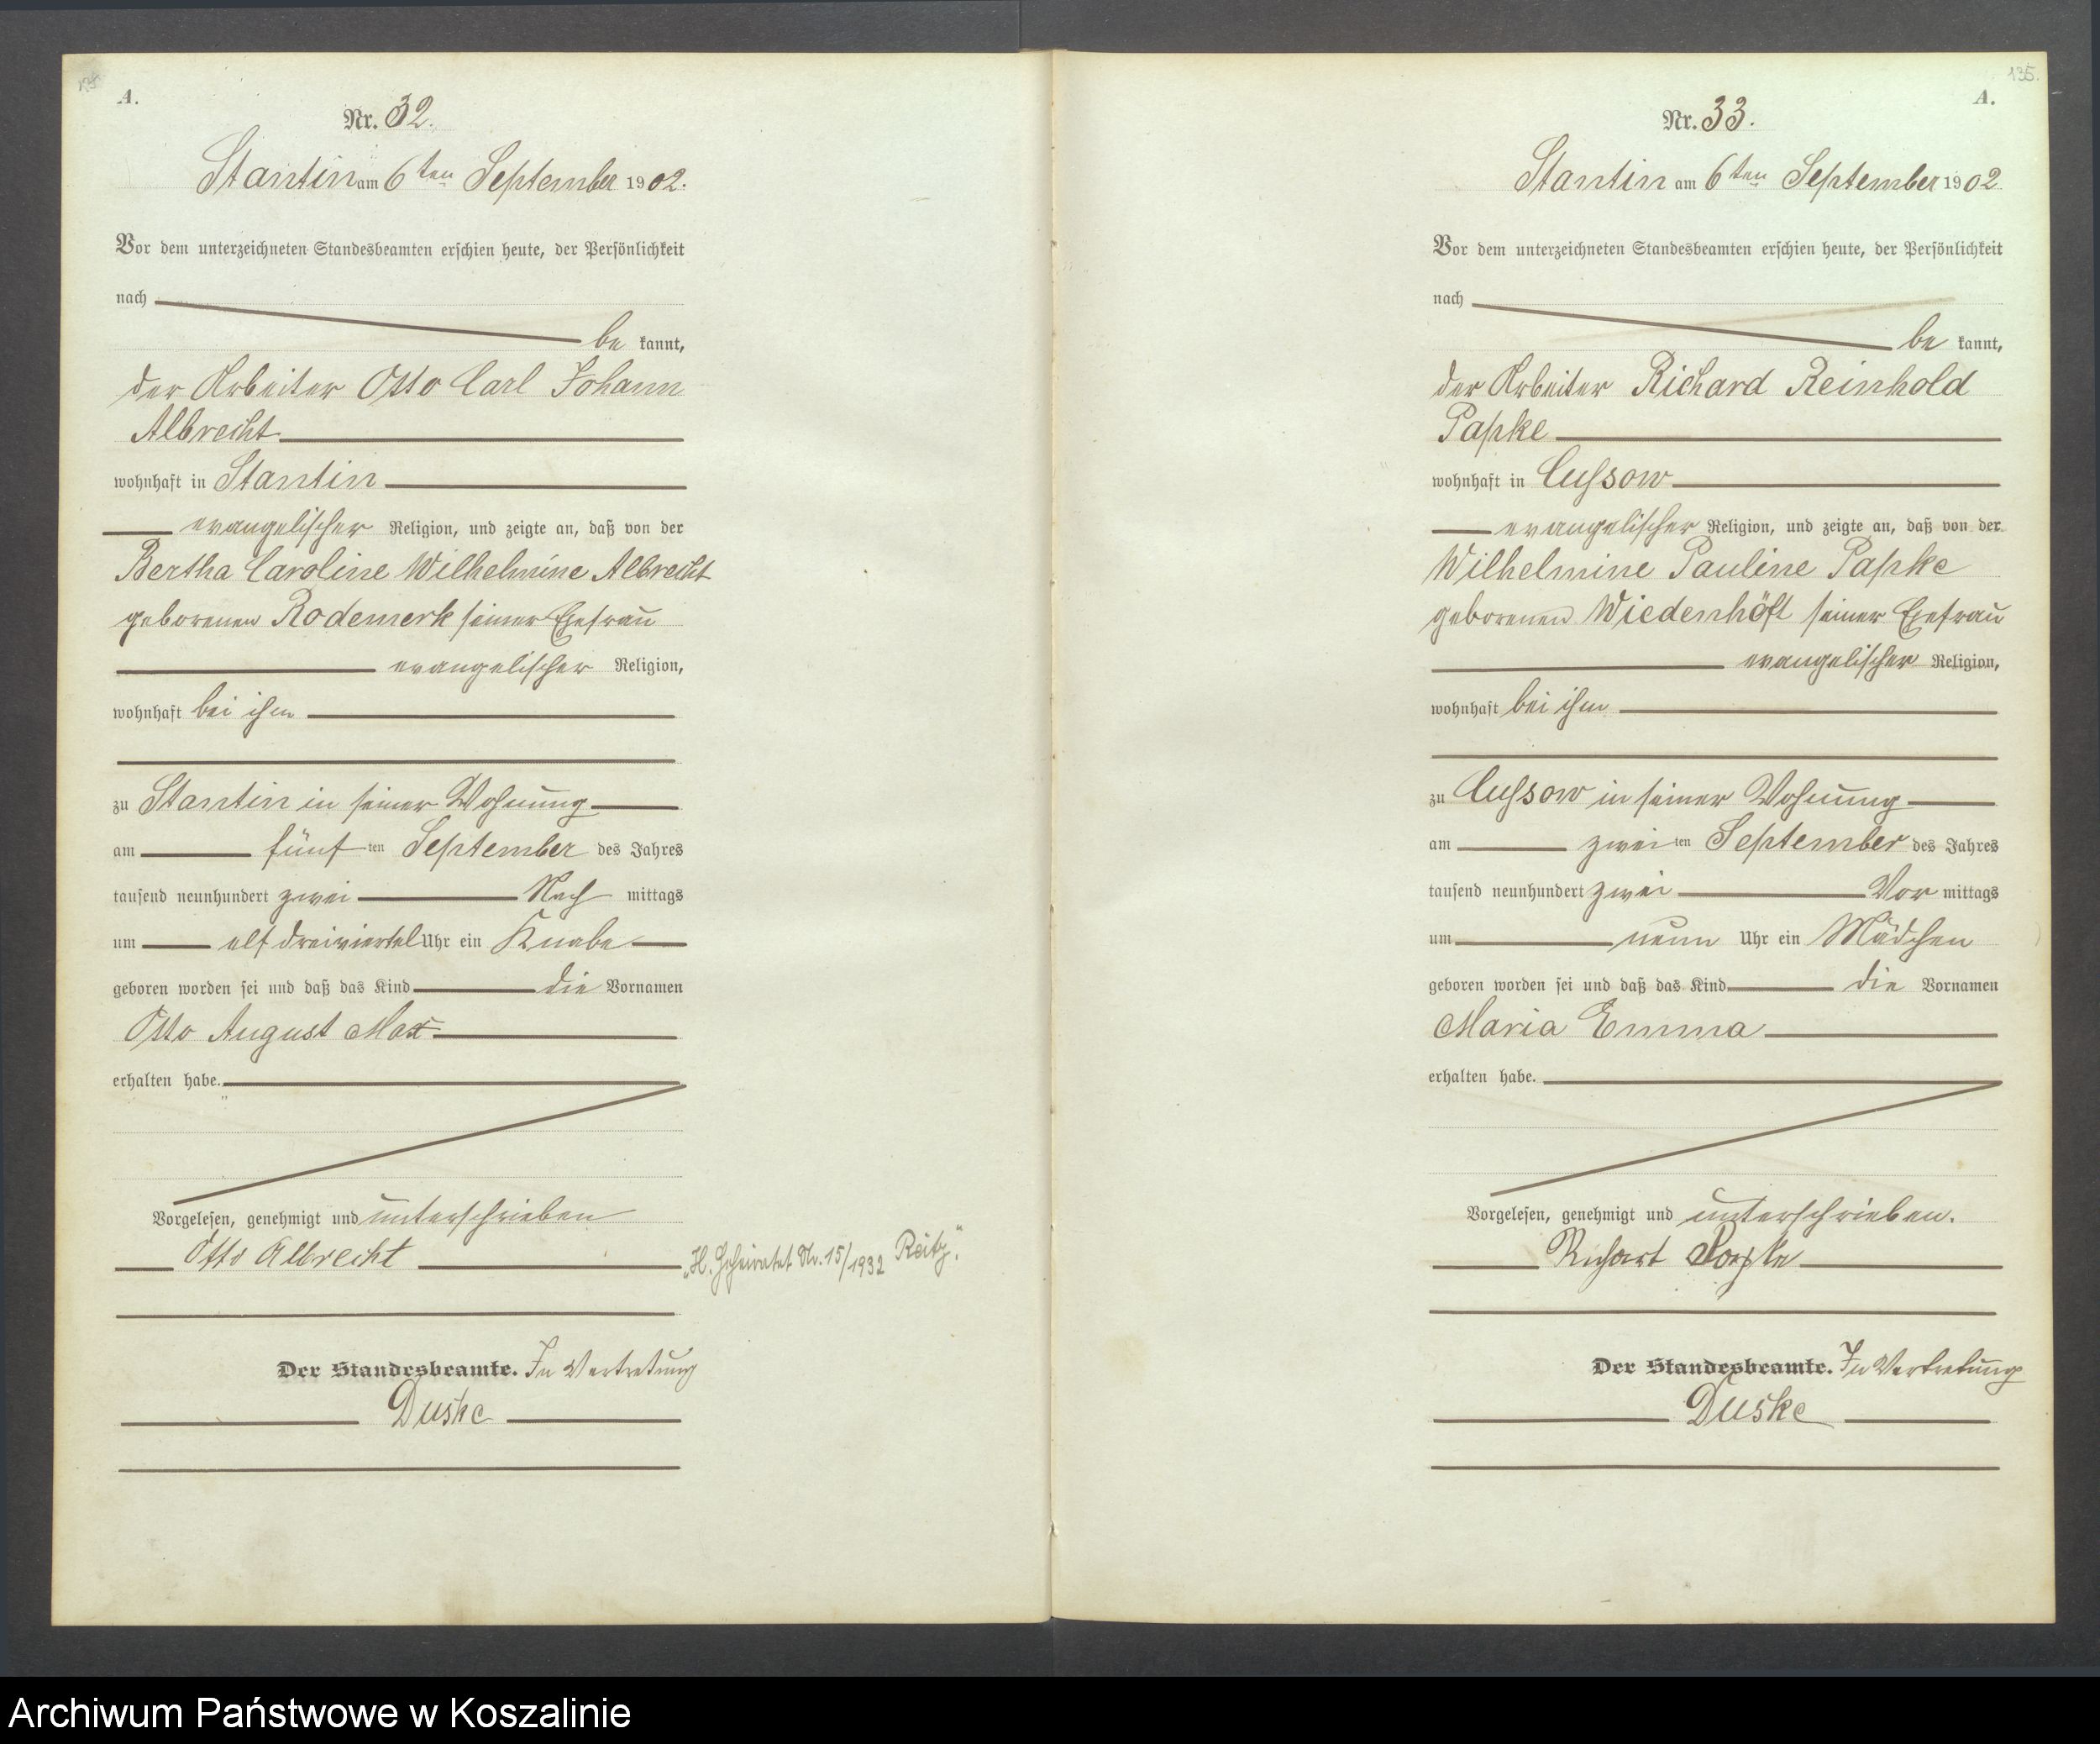 A.
Nr. 32.
Stantin am 6ten September 1902.
Vor dem unterzeichneten Standesbeamten erschien heute, der Persönlichkeit
nach
be kannt,
der Arbeiter Otto Carl Johann
Albrecht
wohnhaft in Stantin
evangelischer Religion, und zeigte an, daß von der
Bertha Caroline Wilhelmine Albrecht
geborenen Rodemerk seiner Ehefrau
evangelischer Religion,
wohnhaft bei ihm
zu Stantin in seiner Wohnung
am fünf ten September des Jahres
tausend neunhundert zwei Nach mittags
um elf dreiviertel Uhr ein Knabe
geboren worden sei und daß das Kind die Vornamen
Otto August Max
erhalten habe.
Vorgelesen, genehmigt und unterschrieben
Otto Albrecht
„H. Geheiratet Nr. 15/1932 Reitz.“
Der Standesbeamte. In Vertretung
Duske
135.
A.
Nr. 33.
Stantin am 6ten September 1902
Vor dem unterzeichneten Standesbeamten erschien heute, der Persönlichkeit
nach
be kannt,
der Arbeiter Richard Reinhold
Papke
wohnhaft in Cussow
evangelischer Religion, und zeigte an, daß von der
Wilhelmine Pauline Papke
geborenen Wiedenhöft seiner Ehefrau
evangelischer Religion,
wohnhaft bei ihm
zu Cussow in seiner Wohnung
am zwei ten September des Jahres
tausend neunhundert zwei Vor mittags
um neun Uhr ein Mädchen
geboren worden sei und daß das Kind die Vornamen
Maria Emma
erhalten habe.
Vorgelesen, genehmigt und unterschrieben.
Richart Papke
Der Standesbeamte. In Vertretung
Duske
Archiwum Państwowe w Koszalinie